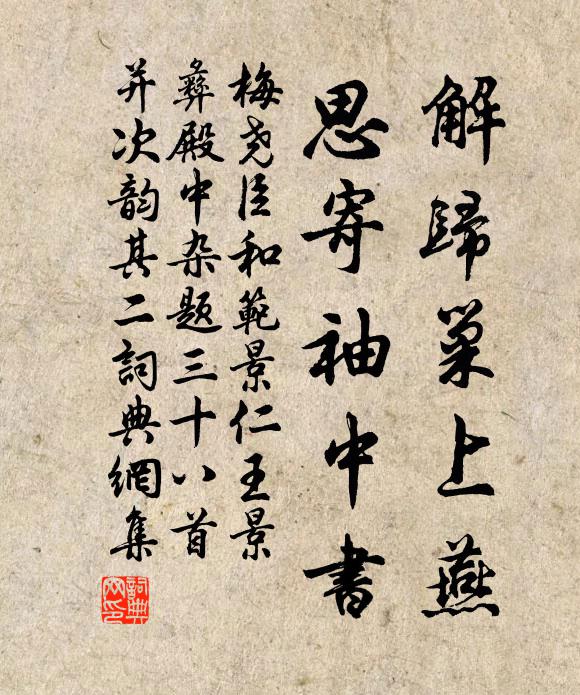 解歸巢上燕
思寄袖中書
梅堯臣和範景仁王景
彝殿中杂题三十八首
并次韵其二詞典網集
詞典网印